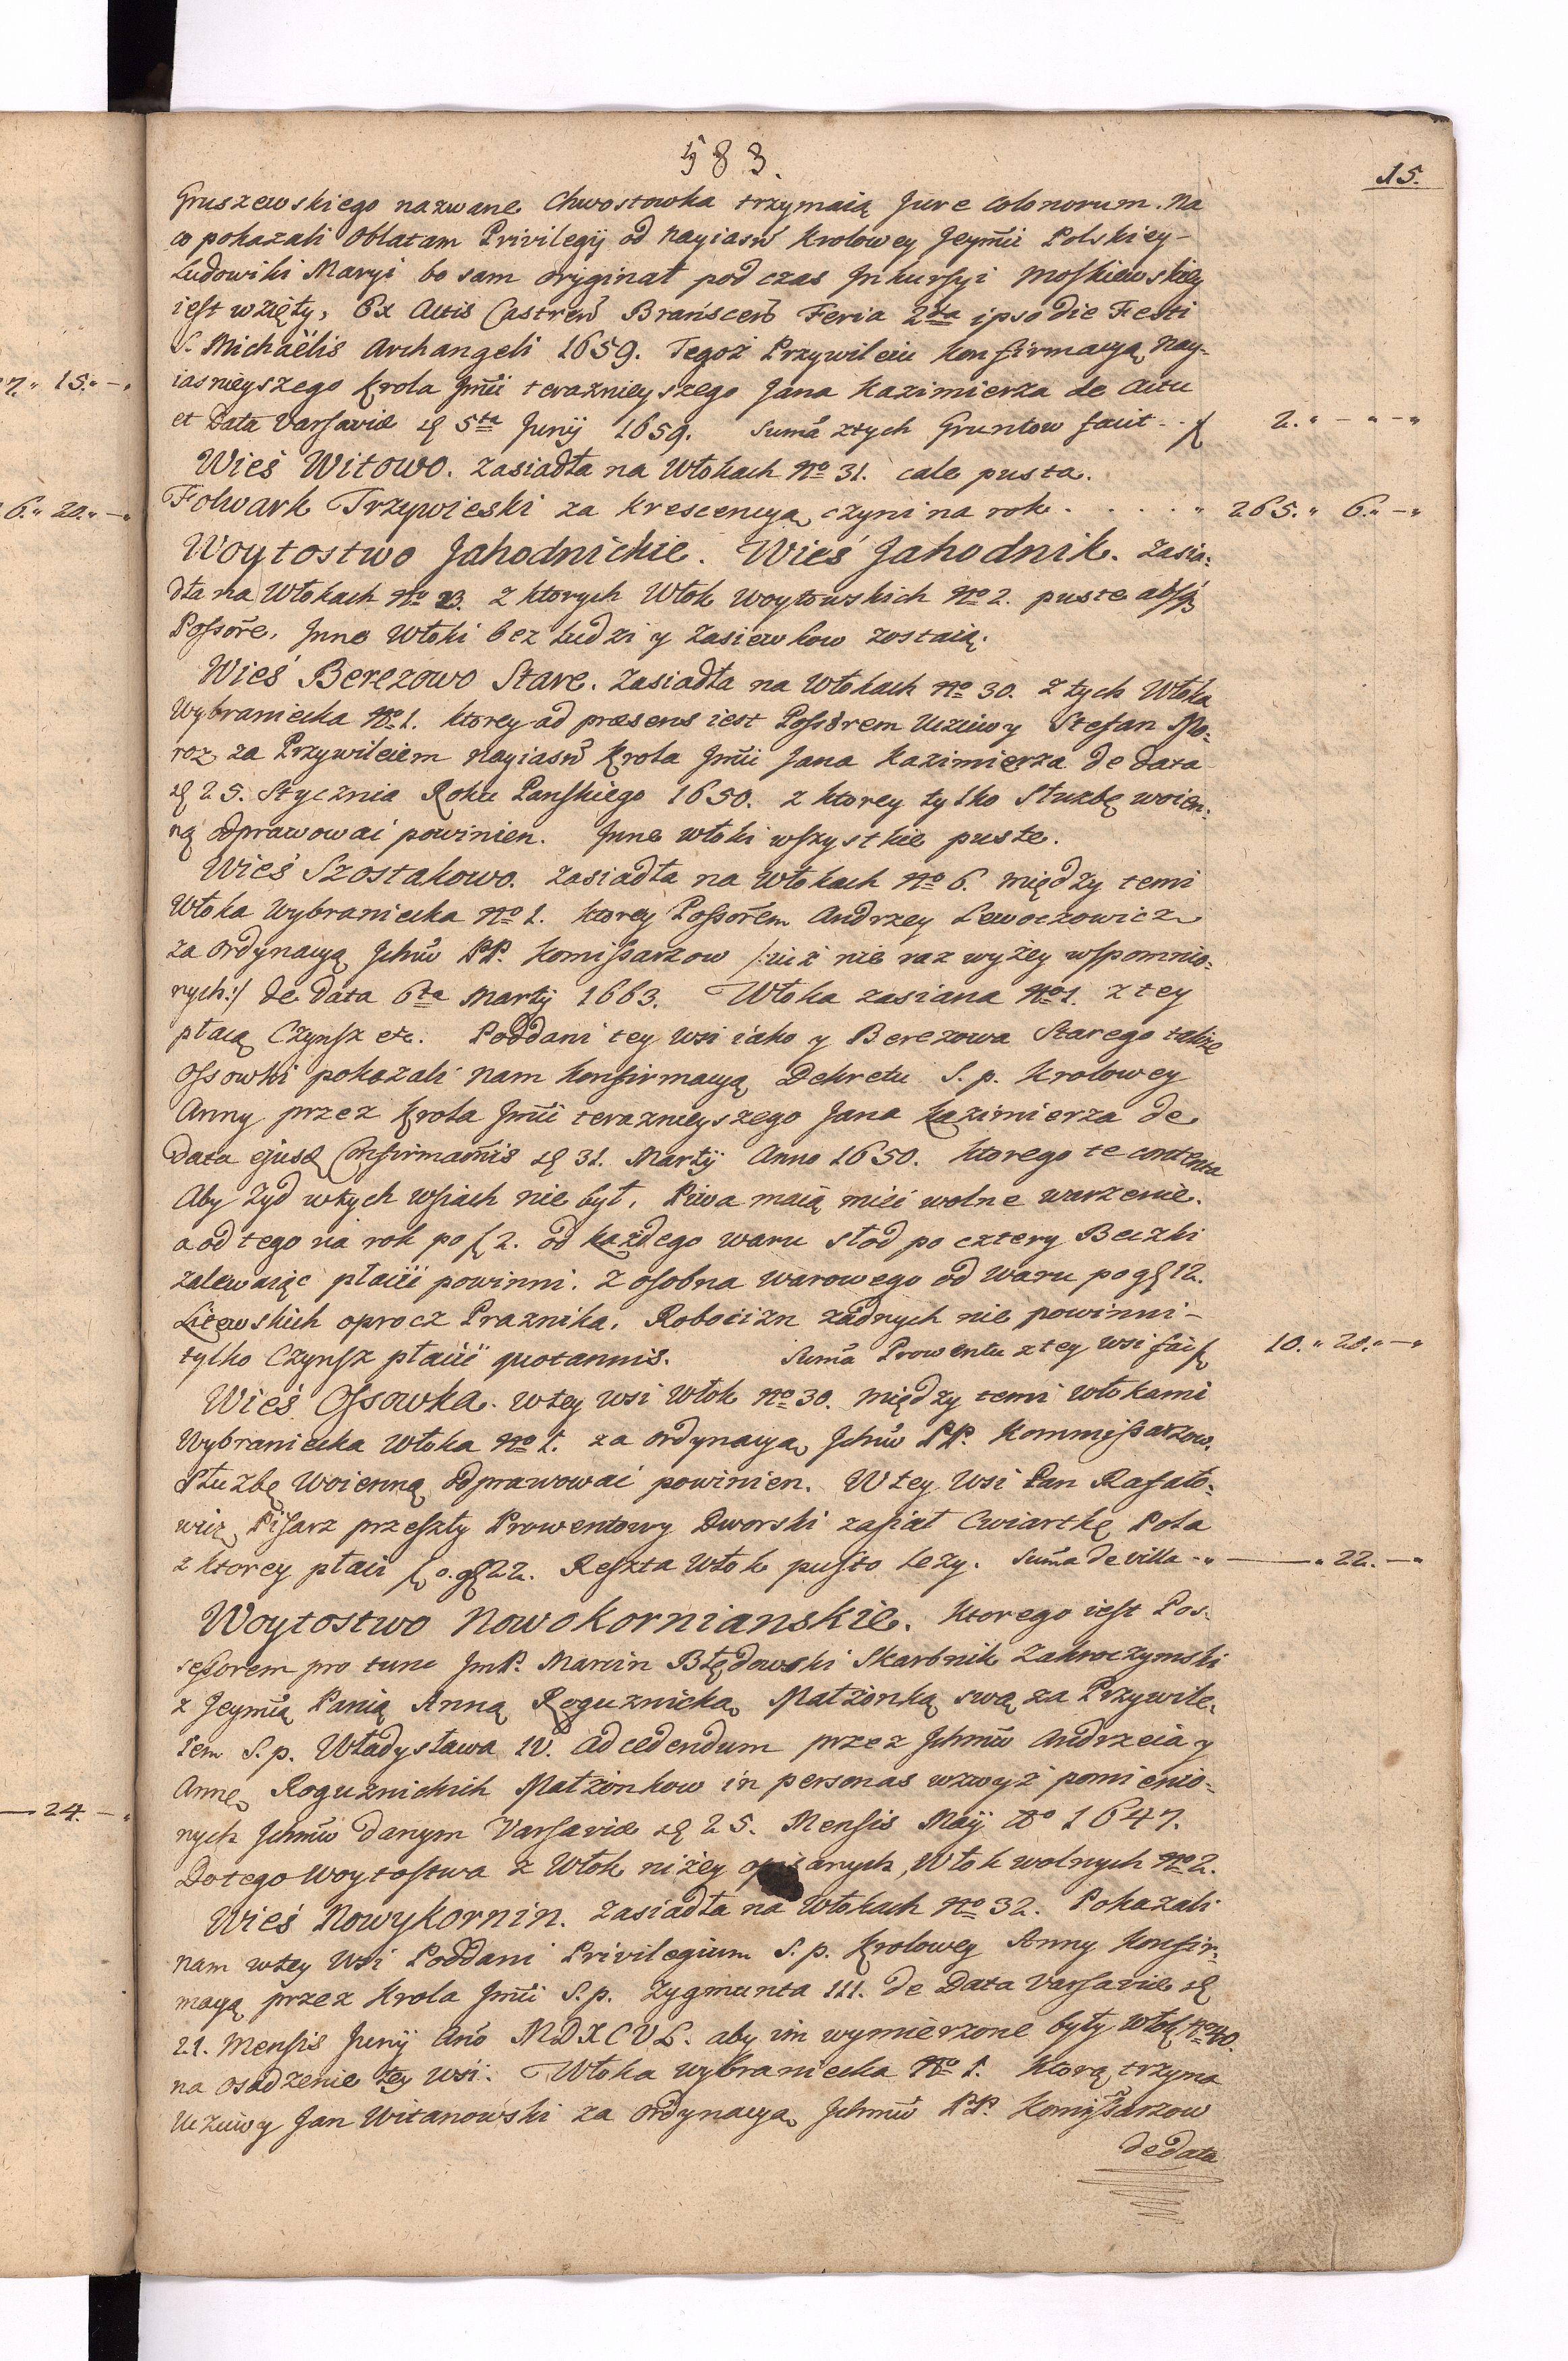 583.
15.
Gruszewskiego nazwane Chwostowka trzymaią Jure colonorum. Na
co pokazali Oblatam Privilegij od Nayiasń Krolowey Jeymći Polskiey -
Ludowiki Maryi bo sam oryginał pod czas Jnkursyi Moskiewskiey
iest wzięty, Ex Actis Castreń Brańsceń Feria 2da ipso die Festi
S. Michaëlis Archangeli 1659. Tegoż Przywileiu Konfirmacyą Nay-
iasnieyszego Krola Jmći teraznieyszego Jana Kazimierza de Actu
et Data Varsaviæ d. 5ta Junij 1659. Suma ztych Gruntow facit - . f 2. " - " - "
Wieś Witowo. Zasiadła na Włokach No 31. cale pusta.
Folwark Trzywieski za Krescencyą czyni na rok . . . . . " 265. " 6. " - "
Woytostwo Jahodnickie. Wieś Jahodnik. Zasia-
dła na Włokach No 23. z ktorych Włok Woytowskich No 2. puste absq
Possore. Jnne Włoki bez Ludzi y Zasiewkow zostaią.
Wieś Berezowo Stare. Zasiadła na Włokach No 30. z tych Włoka
Wybraniecka No 1. ktorey ad præsens iest Possorem Uczciwy Stefan Mo-
roz za Przywileiem Nayiasń Krola Jmći Jana Kazimierza de data
d. 25. Stycznia Roku Panskiego 1650. z ktorey tylko Służbę woien-
ną odprawować powinien. Jnne włoki wszystkie puste.
Wieś Szostakowo. Zasiadła na Włokach No 6. między temi
Włoka Wybraniecka No 1. ktorey Possorem Andrzey Lewoczowicz
za Ordynacyą Jchmć PP. Komissarzow /: iuż nie raz wyżey wspomnio-
nych :/ de data 6ta Martij 1663. Włoka zasiana No 1. z tey
płacą Czynsz etc. Poddani tey wsi iako y Berezowa Starego także
Ossowki pokazali nam Konfirmacyą Dekretu S. p. Krolowey
Anny przez Krola Jmći teraznieyszego Jana Kazimierza de
Data ejusd Confirmaonis d. 31. Martij Anno 1650. ktorego te contenta
Aby Zyd w tych wsiach nie był, Piwa maią mieć wolne warzenie.
a od tego na rok po f 2. od każdego waru słod po cztery Beczki
zalewaiąc płacić powinni. Z osobna warowego od waru po g 12.
Litewskich oprocz Praznika. Robocizn żadnych nie powinni -
tylko Czynsz płacić quotannis. Suma Prowentu z tey wsi fać f 10. " 20. " - "
Wieś Ossowka. w tey wsi Włok No 30. między temi włokami
Wybraniecka włoka No 1. za Ordynacyą Jchmć PP. Kommissarzow.
Służbę Woienną odprawowac powinien. W tey Wsi Pan Rafało-
wicz Pisarz przeszły Prowentowy Dworski zasiał Cwiartkę Pola
z ktorey płaci f 0. g 22. Reszta Włok pusto leży. Suma de villa - " —— " 22. - "
Woytostwo Nowokornianskie. Ktorego iest Pos-
sessorem pro tunc JmP. Marcin Błędowski Skarbnik Zakroczymski
z Jeymćią Panią Anną Roguznicką Małżonką swą za Przywile-
iem S. p. Władysława IV. ad cedendum przez Jchmć Andrzeia y
Annę Roguznickich Małżonkow in personas wzwyż pomienio-
nych Jchmć danym Varsaviæ d. 25. Mensis Maij Ao 1647.
Do tego Woytostwa z Włok niżey opisanych, Włok wolnych No 2.
Wieś Nowykornin. Zasiadła na Włokach No 32. Pokazali
nam w tey Wsi Poddani Privilegium S. p. Krolowey Anny Konfir-
macyą przez Krola Jmći S. p. Zygmunta III. de Data Varsaviæ d.
21. Mensis Junij Ano MDXCVI. aby im wymierzone były Włok No 40.
na osadzenie tey wsi. Włoka wybraniecka No 1. Ktorą trzyma
Uczciwy Jan Witanowski za Ordynacyą Jchmć PP. Komissarzow
de data
7. " 15. " - "
6. " 20. " - "
— 24. - "